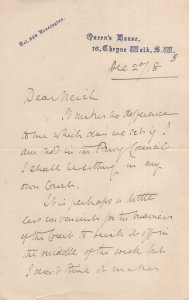 Tel. 309 Kensington.
Queen's House,
16, Cheyne Walk, S.W.
Dec 20/18
Dear Keith
It makes no difference
to me which day we sit if I
am not in the Privy Council
I shall be sitting in my
own Court.
It is perhaps a little
less convenient for the business
of the Court to break it off in
the middle of the week but
I don't think it makes